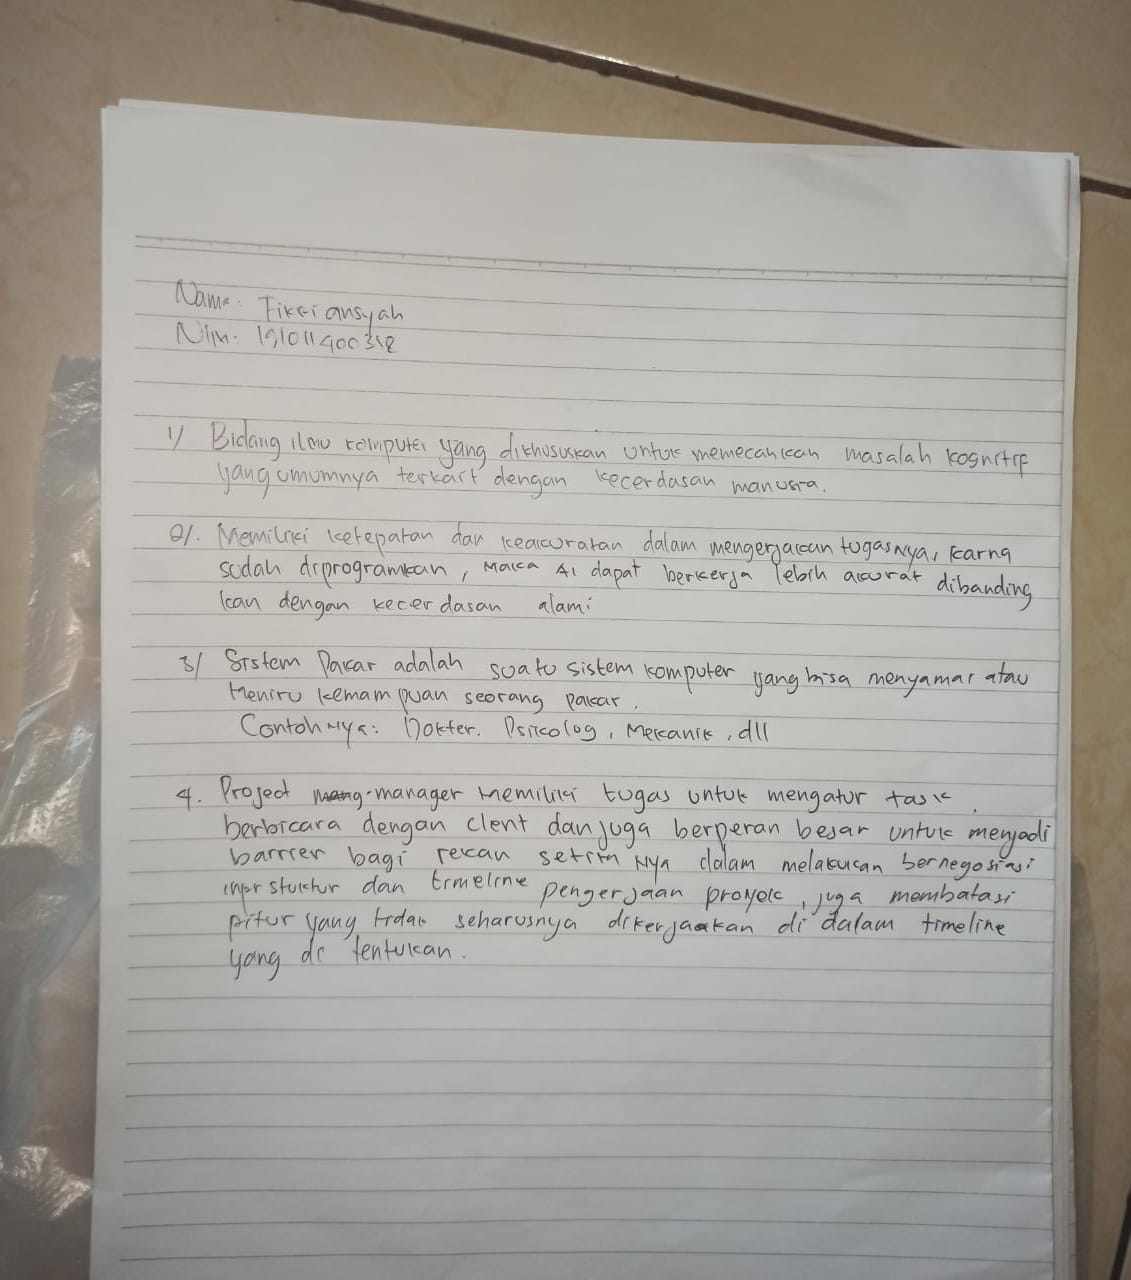 Nama: Fikriansyah
Nim: 191011400318
1/ Bidang ilmu komputer yang dikhususkan untuk memecahkan masalah kognitif
yang umumnya terkait dengan kecerdasan manusia.
2/. Memiliki ketepatan dan keakuratan dalam mengerjakan tugasnya, karna
sudah diprogramkan, maka AI dapat berkerja lebih akurat dibanding
kan dengan kecerdasan alami
3/ Sistem Pakar adalah suatu sistem komputer yang bisa menyamar atau
Meniru kemampuan seorang pakar.
Contohnya: Dokter. Psikolog, Mekanik, dll
4. Project manager memiliki tugas untuk mengatur task
berbicara dengan clent dan juga berperan besar untuk menjadi
barrier bagi rekan setim nya dalam melakukan bernegosiasi
dan timeline pengerjaan proyek, juga membatasi
pitur yang tidak seharusnya dikerjaakan di dalam timeline
yang di tentukan.